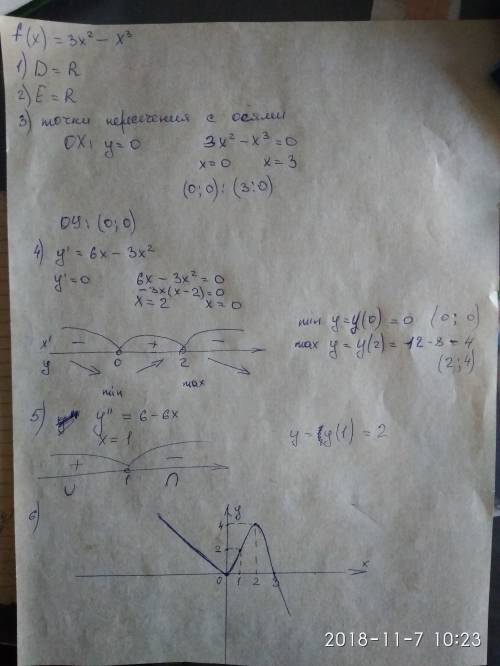 f(x) = 3x² - x³
1) D = R
2) E = R
3) точки пересечения с осями
OX: y=0 3x² - x³ = 0
x=0 x=3
(0;0); (3;0)
OY: (0;0)
4) y' = 6x - 3x²
y'=0 6x - 3x² = 0
-3x(x-2)=0
x=2 x=0
min y=y(0) = 0 (0; 0)
max y = y(2) = 12-8 = 4
(2;4)
x' - + -
y 0 2
min max
5) y'' = 6-6x
x=1
y = y(1) = 2
+ 1 -
∪ ∩
6)
y
4
2
0 1 2 3 x
2018-11-7 10:23